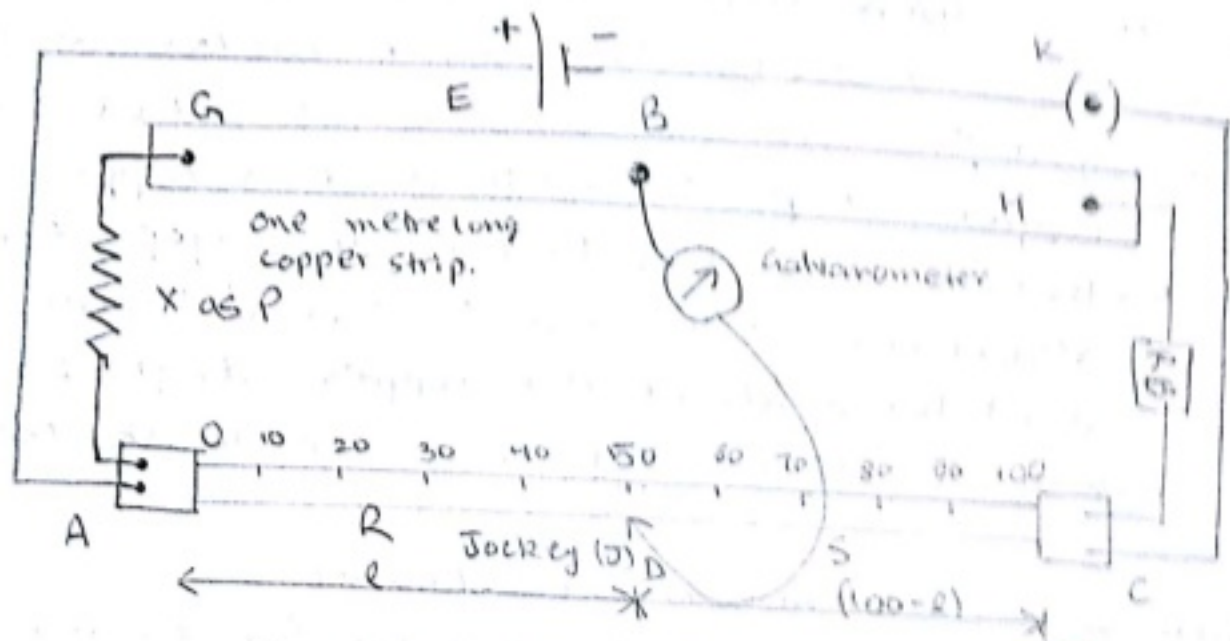 + −
K
G E B
(•)
H
one metre long
copper strip.
Galvanometer
X as P
0 10 20 30 40 50 60 70 80 90 100
A R Jockey (J) D S C
l (100-l)